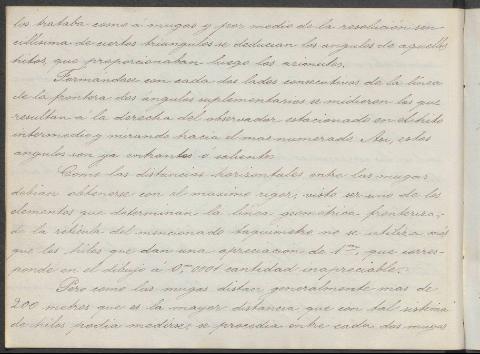 los trataba como á mugas y por medio de la resolución sen-
cillisima de ciertos triangulos se deducian los angulos de aquellos
hitos que proporcionaban luego los azimutes.
Formandose con cada dos lados consecutivos de la linea
de la frontera dos ángulos suplementarios se midieron los que
resultan á la derecha del observador estacionado en el hito
intermedio y mirando hacia el mas numerado. Asi, estos
angulos son ya entrantes ó salientes.
Como las distancias horizontales entre las mugas
debian obtenerse con el maximo rigor, visto ser uno de los
elementos que determinan la linea geometrica fronteriza;
de la reticula del mencionado taquimetro no se utilizó mas
que los hilos que dan una apreciación de 1 m, que corres-
ponde en el dibujo á 0, m 0001 cantidad inapreciable.
Pero como las mugas distan generalmente mas de
200 metros que es la mayor distancia que con tal sistema
de hilos podia medirse; se procedia entre cada dos mugas